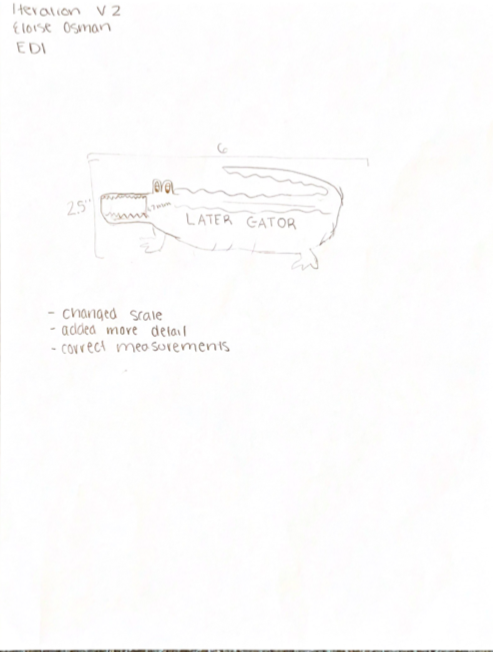 Iteration V2
Eloise Osman
EDI
6
2.5"
7mm
LATER GATOR
- changed scale
- added more detail
- correct measurements